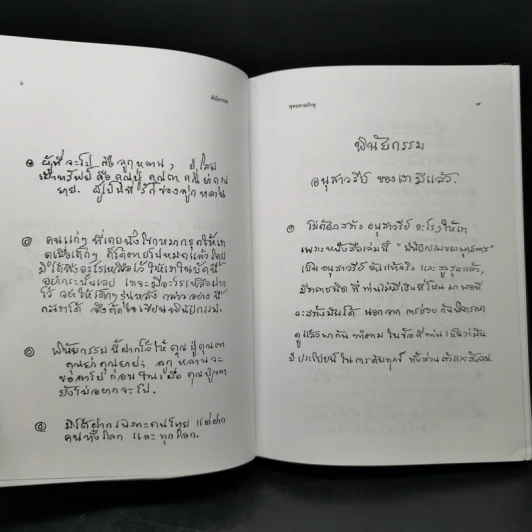 ๖
พินัยกรรม
๏ ผู้ที่จะโป คือ ลูกหลาน, ผู้ใส่
เป่าทรัพย์ คือ คุณปู่ คุณตา คุณย่า คุณ
ยาย. ผู้เป็นที่รักของลูกหลาน
๏ คนแก่ๆ ที่เคยนั่งโขกหมากรุกให้เด็ก
ได้ตายไปหมดแล้วโดย
มิได้
ไว้ ให้เด็กๆ รุ่นหลัง กล่าวอย่างนี้
จึงคิดเขียนพินัยกรรม.
๏ พินัยกรรมนี้ฝากไว้ให้ คุณปู่ คุณตา
คุณย่า คุณยาย; ลูก หลาน จะ
ขอ โป ก่อน ในเมื่อ คุณปู่
ยังไม่อยากจะโป.
๏ มิได้ฝากเฉพาะคนไทย แต่ฝาก
คนทั้งโลก และ ทุกโลก.
พุทธทาสภิกขุ
๗
พินัยกรรม
อนุสาวรีย์ ของเรา มีแล้ว.
๏ ไม่ต้องสร้าง อนุสาวรีย์ อะไรๆ ให้เรา
เพราะหนังสือเล่มนี้
เป็น อนุสาวรีย์ อันแท้จริง และ แล้ว,
มีค่าชนิด ที่ ท่านไม่มีเงินที่ไหน มา พอที่
จะสร้างมันได้ นอกจาก การช่วย กันพิจารณา
ดูแล้วพากัน ทำตาม ในข้อที่ท่าน เห็นว่ามัน
มี ประโยชน์ ในการดับทุกข์ ทั้งส่วนตัวและสังคม.